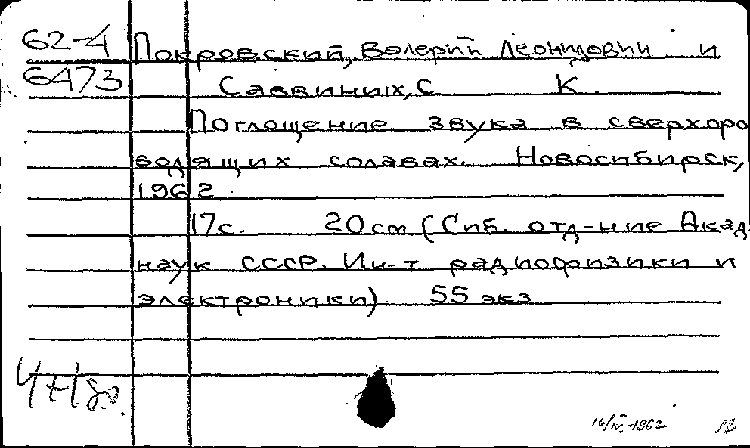 62-4 Покровский, Валерий Леонидович и
6473 Саввиных, С К.
Поглощение звука в сверхпро
водящих сплавах. Новосибирск,
1962.
17с. 20см (Сиб. отд-ние Акад.
наук СССР. Ин-т радиофизики и
электроники) 55 экз
16/IV-1962